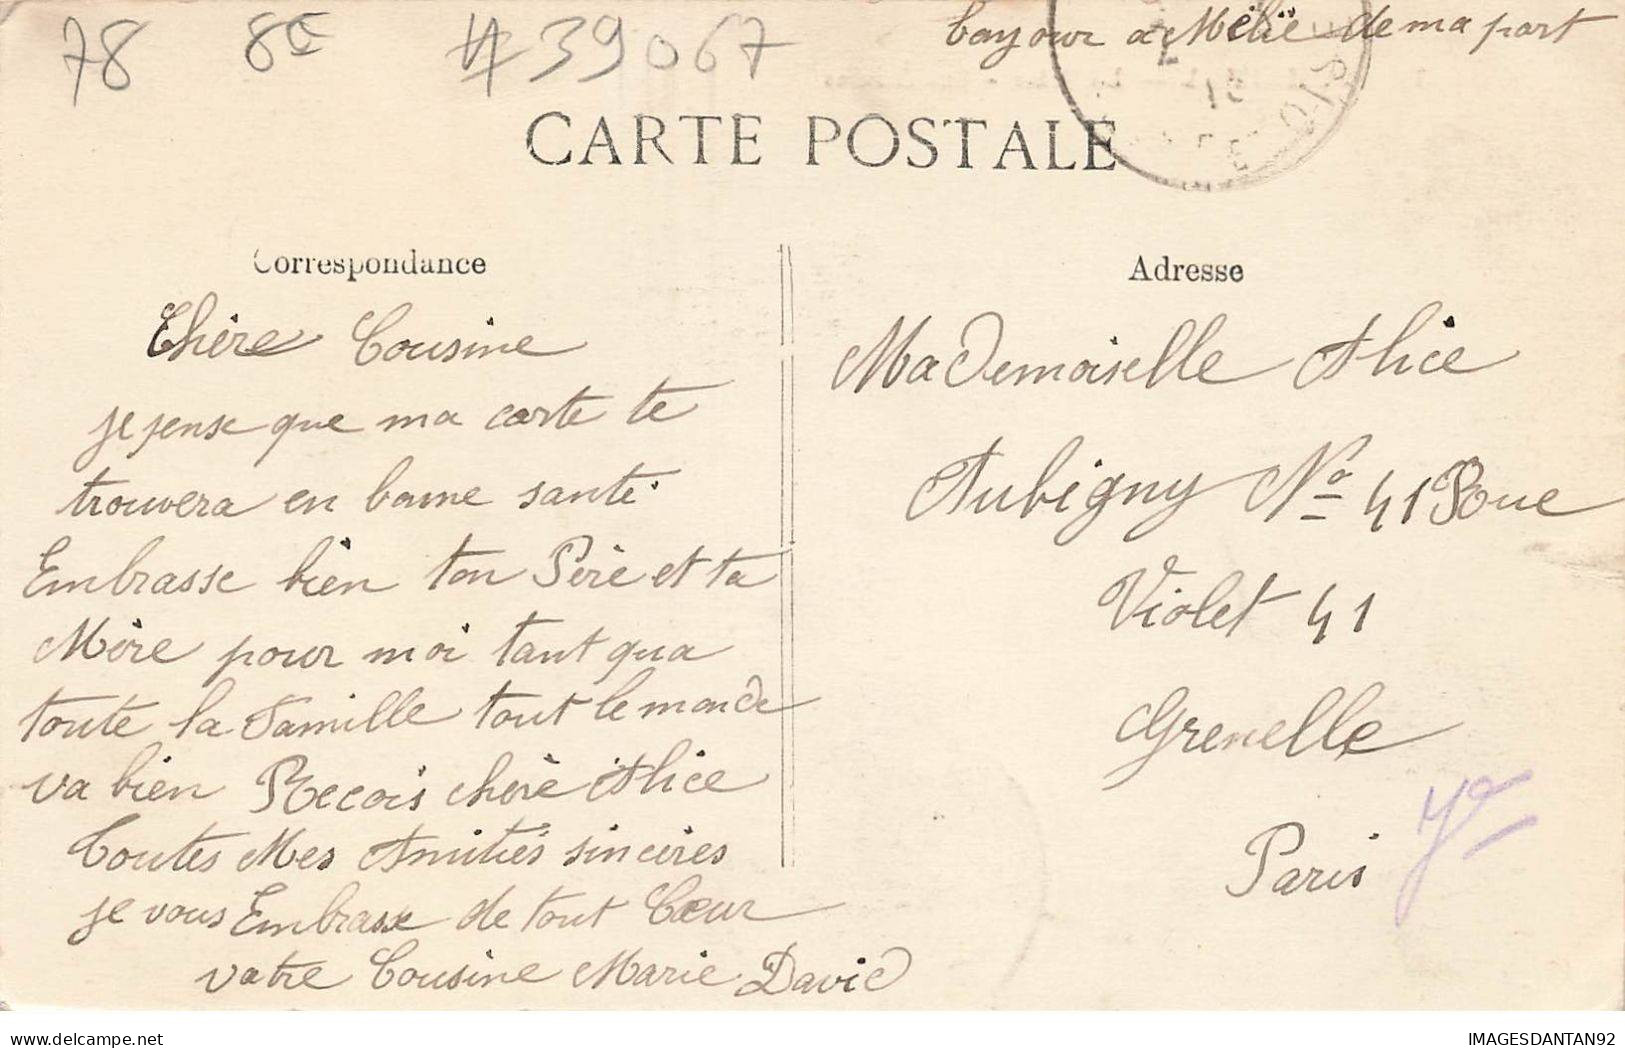 78 8€ #39067
à Mélie de ma part
CARTE POSTALE
Correspondance
Chère Cousine
je pense que ma carte te
trouvera en bonne santé
Embrasse bien ton Père et ta
Mère pour moi tant qua
toute la Famille tout le monde
va bien Recois chère Alice
Toutes Mes Amitiés sincères
je vous Embrasse de tout Cœur
votre Cousine Marie David
Adresse
Mademoiselle Alice
Aubigny No 41 Roue
Violet 41
Grenelle
Paris
OISE
IMAGESDANTAN92